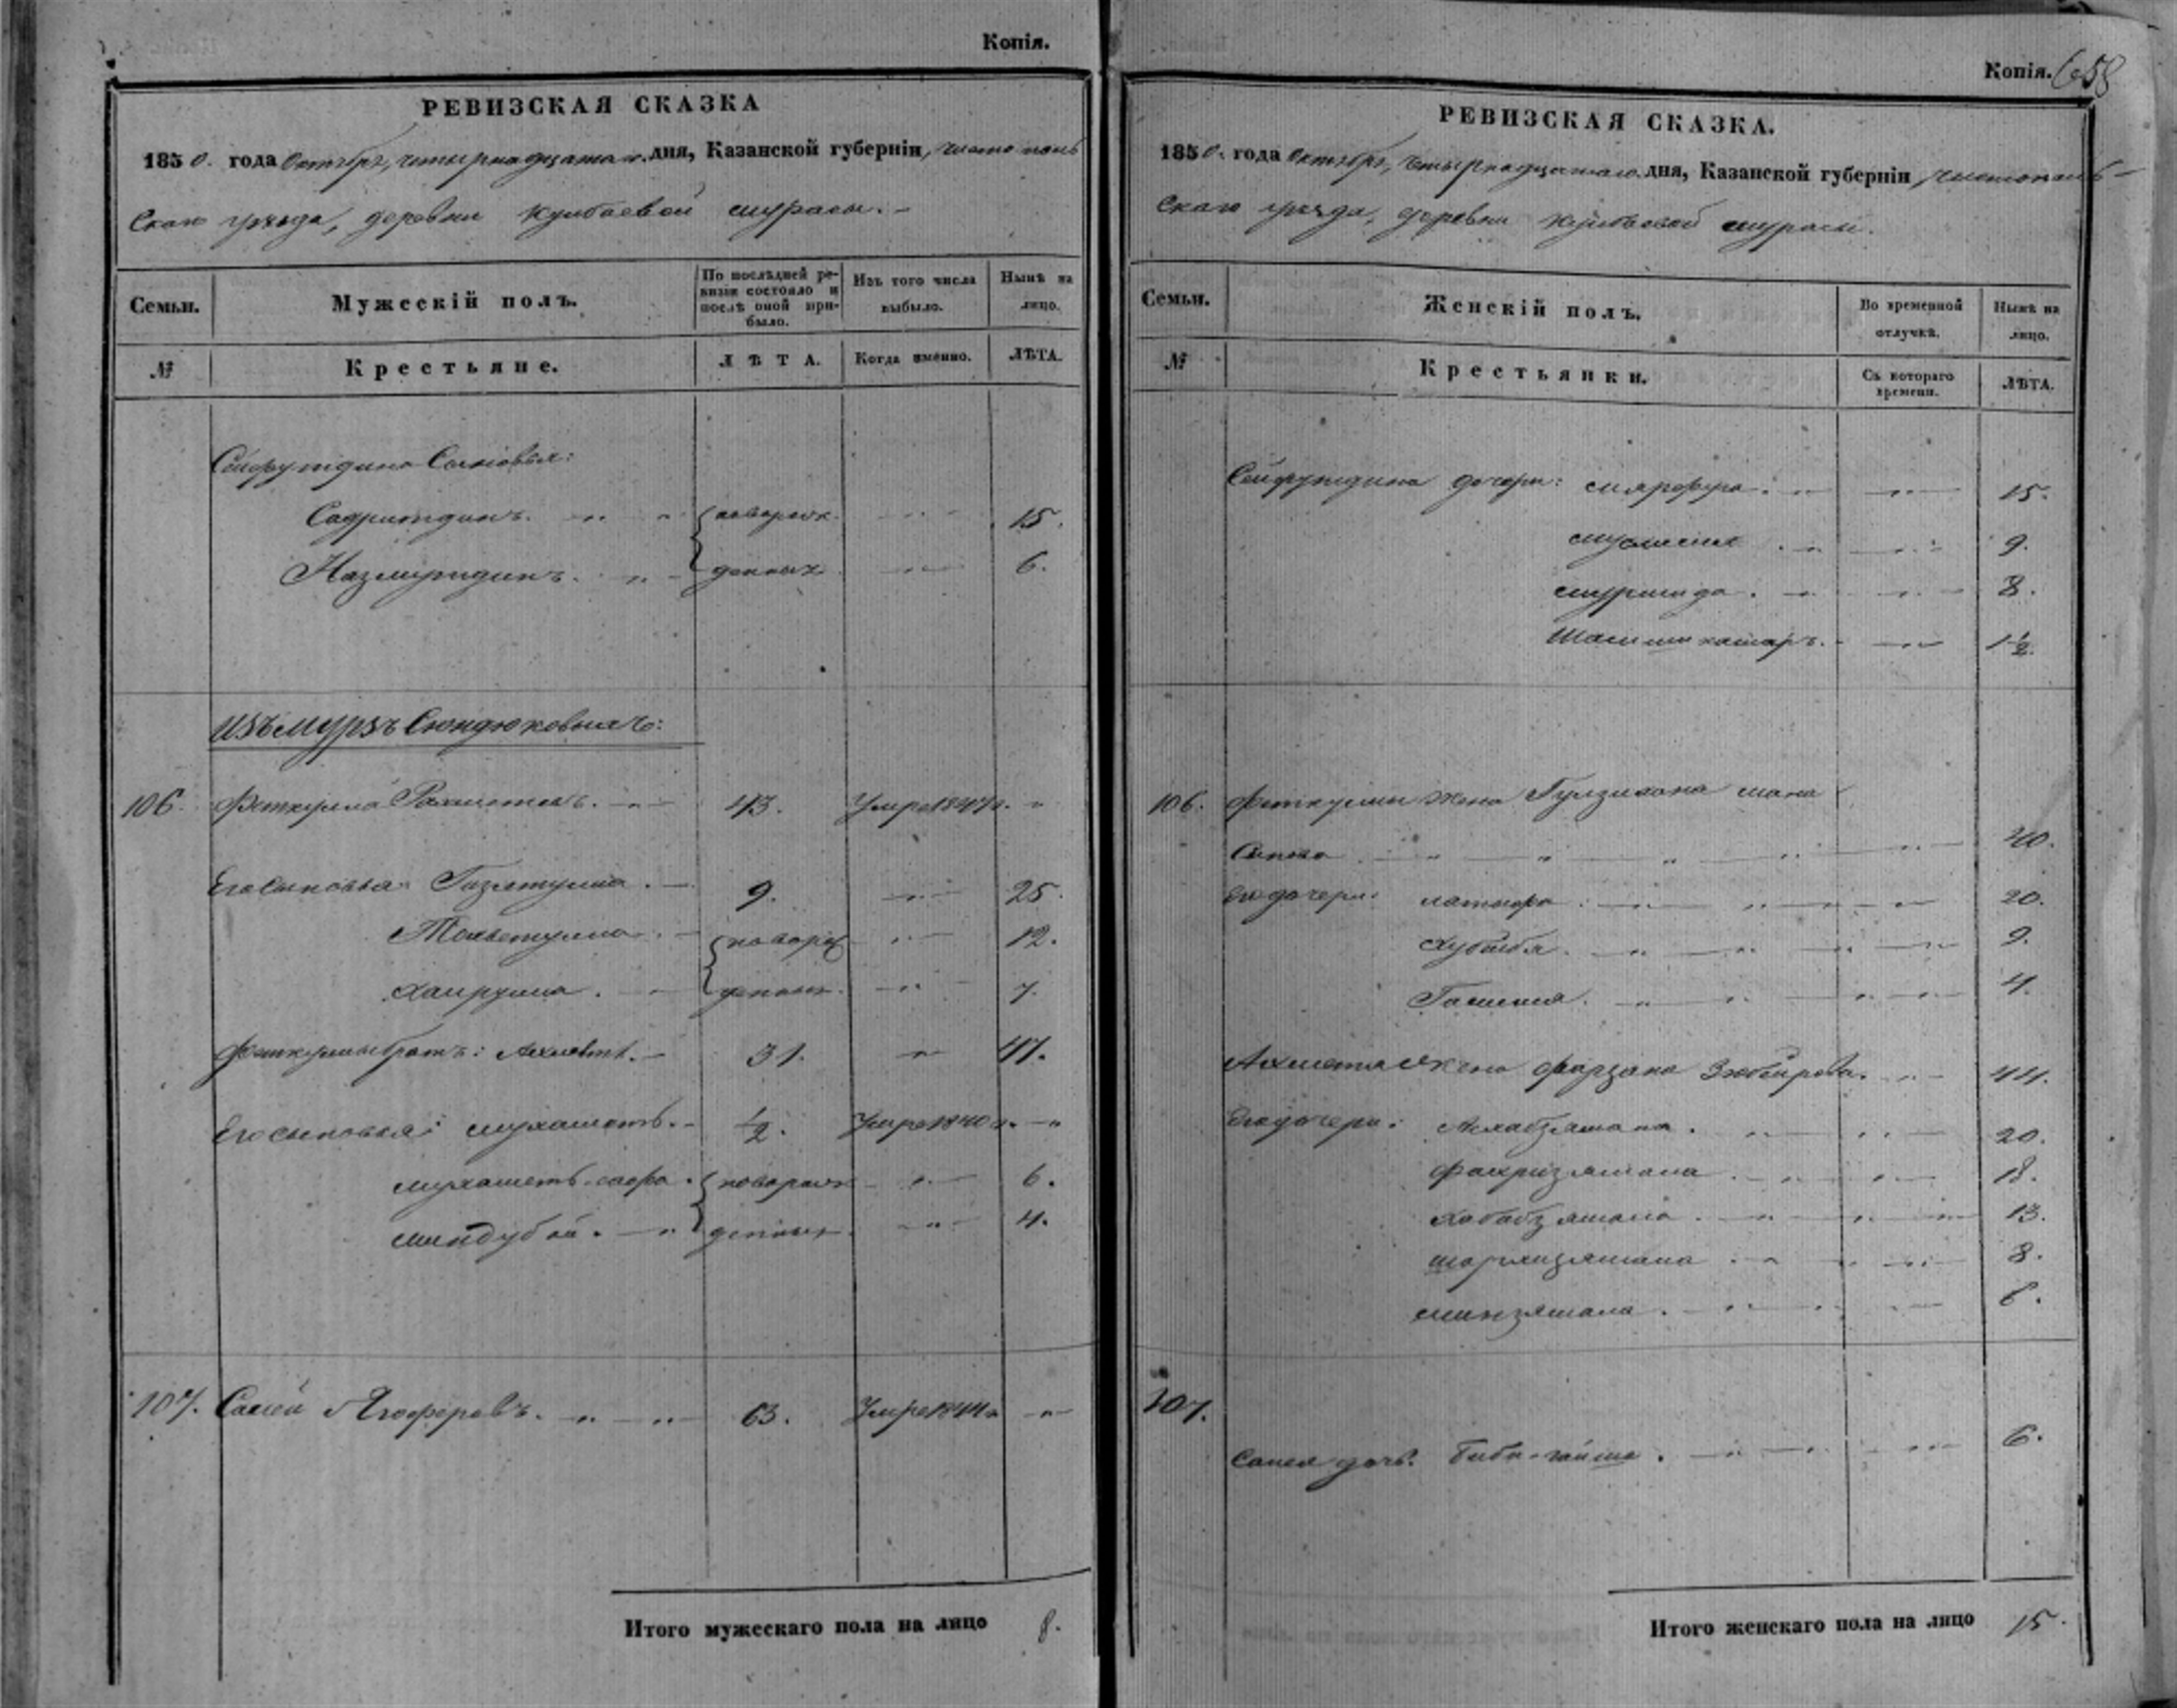 Копія.
РЕВИЗСКАЯ СКАЗКА
1850. года Октября, четырнадцатаго дня, Казанской губерніи, Чистополь
скаго уѣзда, деревни Кулбаевой мурасы. –
Семьи.
Мужескій полъ.
По послѣдней ре-
визіи состояло и
послѣ оной при-
было.
Изъ того числа
выбыло.
Нынѣ на
лицо.
№
Крестьяне.
ЛѢТА.
Когда именно.
ЛѢТА.
Сейфутдина Сыновья:
Садритдинъ. новорож 15.
Назмутдинъ. денных 6.
Изъ мурзъ Сюндюковыхъ:
106. Феткулла Рахметовъ. 43. Умре 1847 г.
Его сыновья Гизетулла. 9. 25.
новорож 12.
Хайрулла. денных. 7.
Феткуллы братъ: Ахметъ. 31. 47.
Его сыновья: мухаметь. ½. Умре 1840 г.
мухаметь-сафа. новорож 6.
миндубай. денных 4.
107. Салей Ягоферовъ. 63. Умре 1844 г.
Итого мужескаго пола на лицо 8.
Копія. 658
РЕВИЗСКАЯ СКАЗКА.
1850. года Октября, четырнадцатаго дня, Казанской губерніи, Чистополь–
скаго уѣзда, деревни Кулбаевой мурасы.
Семьи.
Женскій полъ.
Во временной
отлучкѣ.
Нынѣ на
лицо.
№
Крестьянки.
Съ котораго
времени.
ЛѢТА.
Сейфутдина дочери: 15.
9.
муршида. 8.
1½.
106. Феткуллы жена
40.
Его дочери: латифа. 20.
Хубейбя. 9.
4.
Ахметя жена фарзана Зюбеирова. 44.
Его дочери: 20.
Фахризямала. 18.
Хабабзямала. 13.
8.
минзямала. 6.
107.
Салея дочь: Биби-гайша. 6.
Итого женскаго пола на лицо 15.